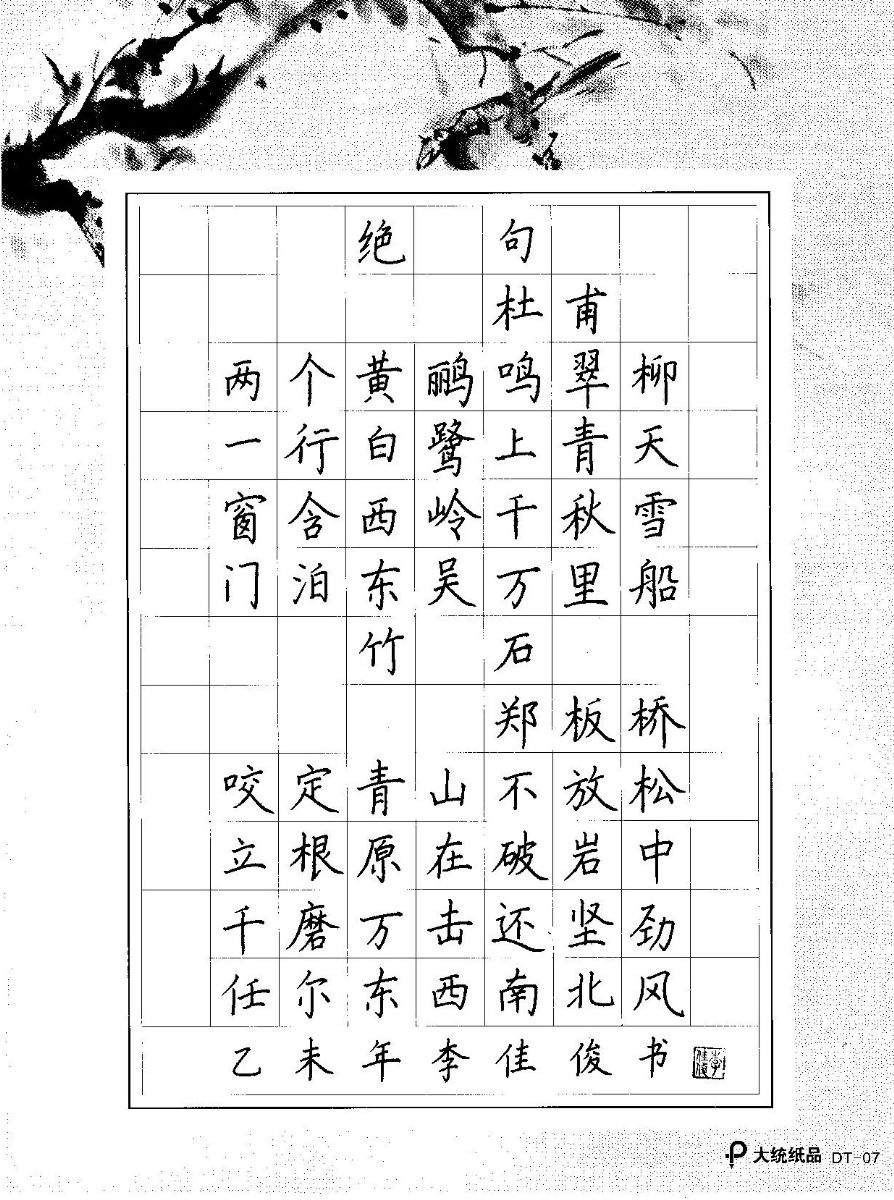 绝 句
杜甫
两个黄鹂鸣翠柳
一行白鹭上青天
窗含西岭千秋雪
门泊东吴万里船
竹 石
郑板桥
咬定青山不放松
立根原在破岩中
千磨万击还坚劲
任尔东西南北风
乙未年李佳俊书
大统纸品 DT-07